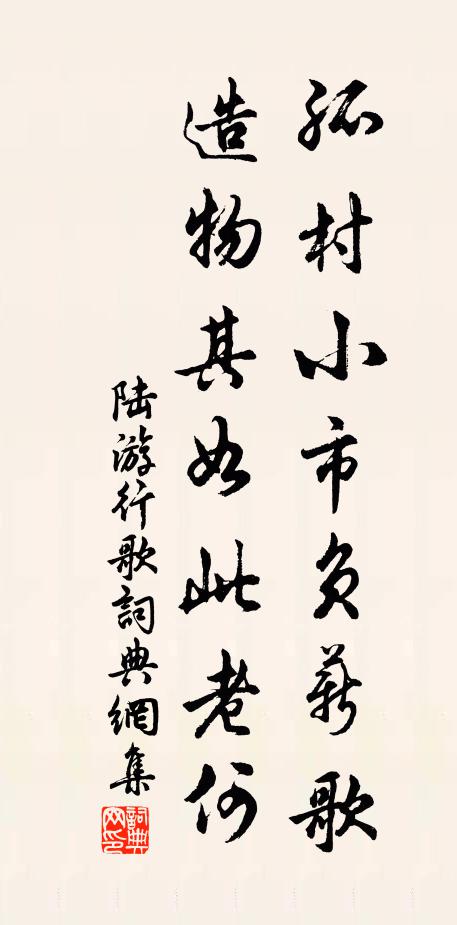 孤村小市負薪歌
造物其如此老何
陆游行歌詞典網集
詞典網印